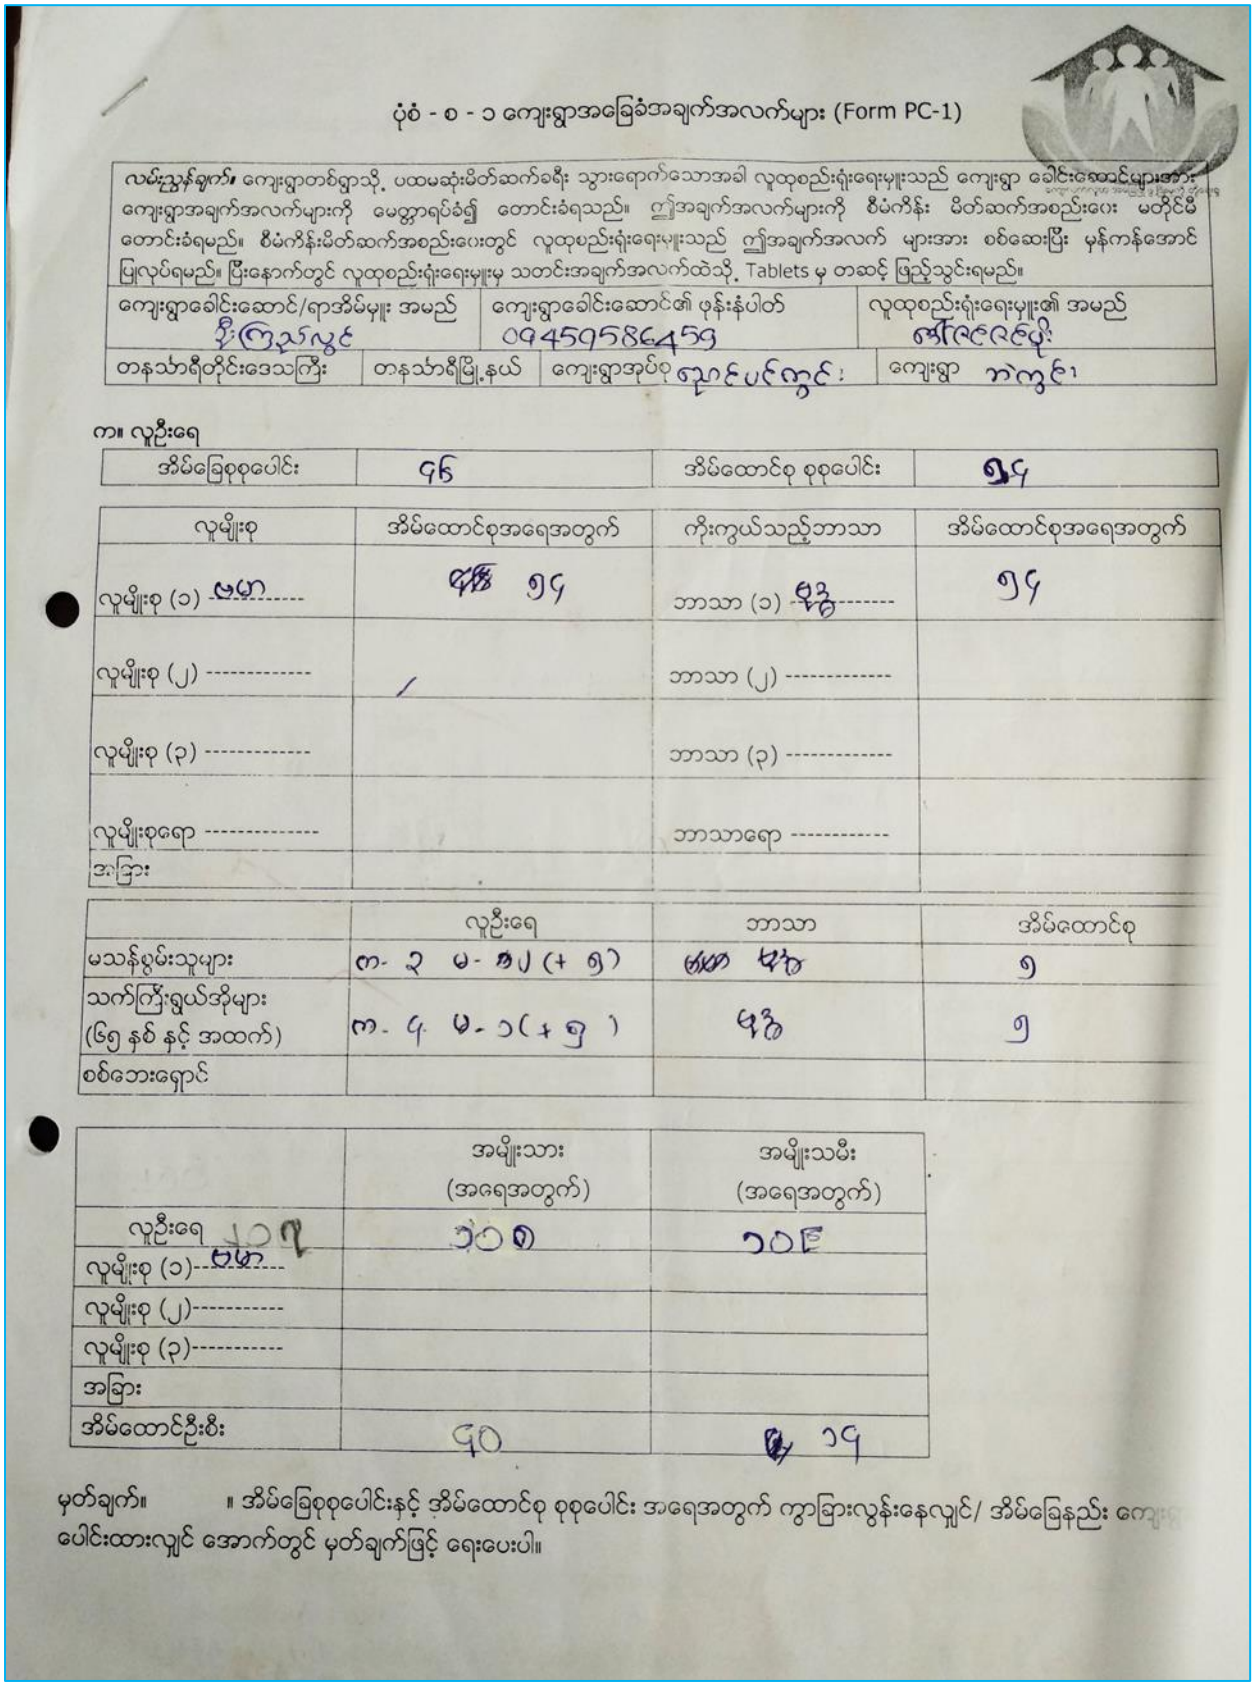 ပုံစံ - စ - ၁ ကျေးရွာအခြေခံအချက်အလက်များ (Form PC-1)
လမ်းညွှန်ချက်။ ကျေးရွာတစ်ရွာသို့ ပထမဆုံးမိတ်ဆက်ခရီး သွားရောက်သောအခါ လူထုစည်းရုံးရေးမှူးသည် ကျေးရွာ ခေါင်းဆောင်များအား
ကျေးရွာအချက်အလက်များကို မေတ္တာရပ်ခံ၍ တောင်းခံရသည်။ ဤအချက်အလက်များကို စီမံကိန်း မိတ်ဆက်အစည်းဝေး မတိုင်မီ
တောင်းခံရမည်။ စီမံကိန်းမိတ်ဆက်အစည်းဝေးတွင် လူထုစည်းရုံးရေးမှူးသည် ဤအချက်အလက် များအား စစ်ဆေးပြီး မှန်ကန်အောင်
ပြုလုပ်ရမည်။ ပြီးနောက်တွင် လူထုစည်းရုံးရေးမှူးမှ သတင်းအချက်အလက်ထဲသို့ Tablets မှ တဆင့် ဖြည့်သွင်းရမည်။
ကျေးရွာခေါင်းဆောင်/ရာအိမ်မှူး အမည် ကျေးရွာခေါင်းဆောင်၏ ဖုန်းနံပါတ် လူထုစည်းရုံးရေးမှူး၏ အမည်
ဦးကြည်လွင် 09459586459
တနင်္သာရီတိုင်းဒေသကြီး တနင်္သာရီမြို့နယ် ကျေးရွာအုပ်စု ညောင်ပင်ကွင်း ကျေးရွာ ဘဲကွင်း
က။ လူဦးရေ
အိမ်ခြေစုစုပေါင်း ၄၆ အိမ်ထောင်စု စုစုပေါင်း ၅၄
လူမျိုးစု အိမ်ထောင်စုအရေအတွက် ကိုးကွယ်သည့်ဘာသာ အိမ်ထောင်စုအရေအတွက်
လူမျိုးစု (၁) ဗမာ ၅၄ ဘာသာ (၁) ဗုဒ္ဓ ၅၄
လူမျိုးစု (၂) ------------- ဘာသာ (၂) -------------
လူမျိုးစု (၃) ------------- ဘာသာ (၃) -------------
လူမျိုးစုရော ------------- ဘာသာရော ------------
အခြား
လူဦးရေ ဘာသာ အိမ်ထောင်စု
မသန်စွမ်းသူများ က- ၃ မ- ၂ (+ ၅) ဗုဒ္ဓ ၅
သက်ကြီးရွယ်အိုများ
(၆၅ နှစ် နှင့် အထက်) က- ၄ မ- ၁ (+ ၅ ) ဗုဒ္ဓ ၅
စစ်ဘေးရှောင်
အမျိုးသား အမျိုးသမီး
(အရေအတွက်) (အရေအတွက်)
လူဦးရေ ၂၁၇ ၁၀၈ ၁၀၉
လူမျိုးစု (၁) ဗမာ
လူမျိုးစု (၂)-----------
လူမျိုးစု (၃)-----------
အခြား
အိမ်ထောင်ဦးစီး ၄၀ ၁၄
မှတ်ချက်။ ။ အိမ်ခြေစုစုပေါင်းနှင့် အိမ်ထောင်စု စုစုပေါင်း အရေအတွက် ကွာခြားလွန်းနေလျှင်/ အိမ်ခြေနည်း ကျေးရွာ
ပေါင်းထားလျှင် အောက်တွင် မှတ်ချက်ဖြင့် ရေးပေးပါ။